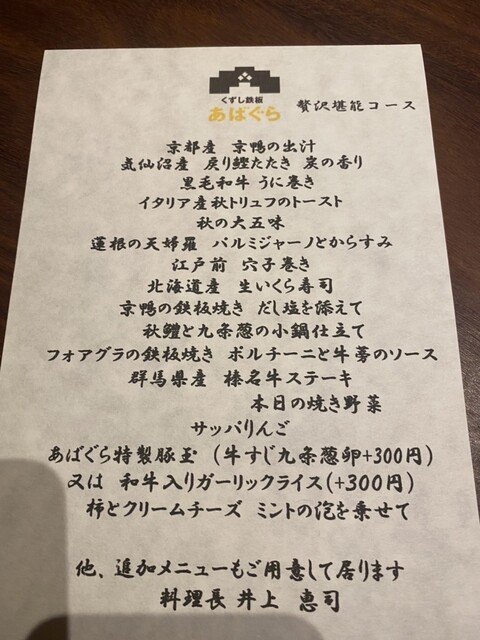 くずし鉄板
あばぐら
贅沢堪能コース
京都産 京鴨の出汁
気仙沼産 戻り鰹たたき 炭の香り
黒毛和牛 うに巻き
イタリア産秋トリュフのトースト
秋の大五味
蓮根の天婦羅 パルミジャーノとからすみ
江戸前 穴子巻き
北海道産 生いくら寿司
京鴨の鉄板焼き だし塩を添えて
秋鱧と九条葱の小鍋仕立て
フォアグラの鉄板焼き ポルチーニと牛蒡のソース
群馬県産 榛名牛ステーキ
本日の焼き野菜
サッパりんご
あばぐら特製豚玉 (牛すじ九条葱卵+300円)
又は 和牛入りガーリックライス(+300円)
柿とクリームチーズ ミントの泡を乗せて
他、追加メニューもご用意して居ります
料理長 井上 恵司